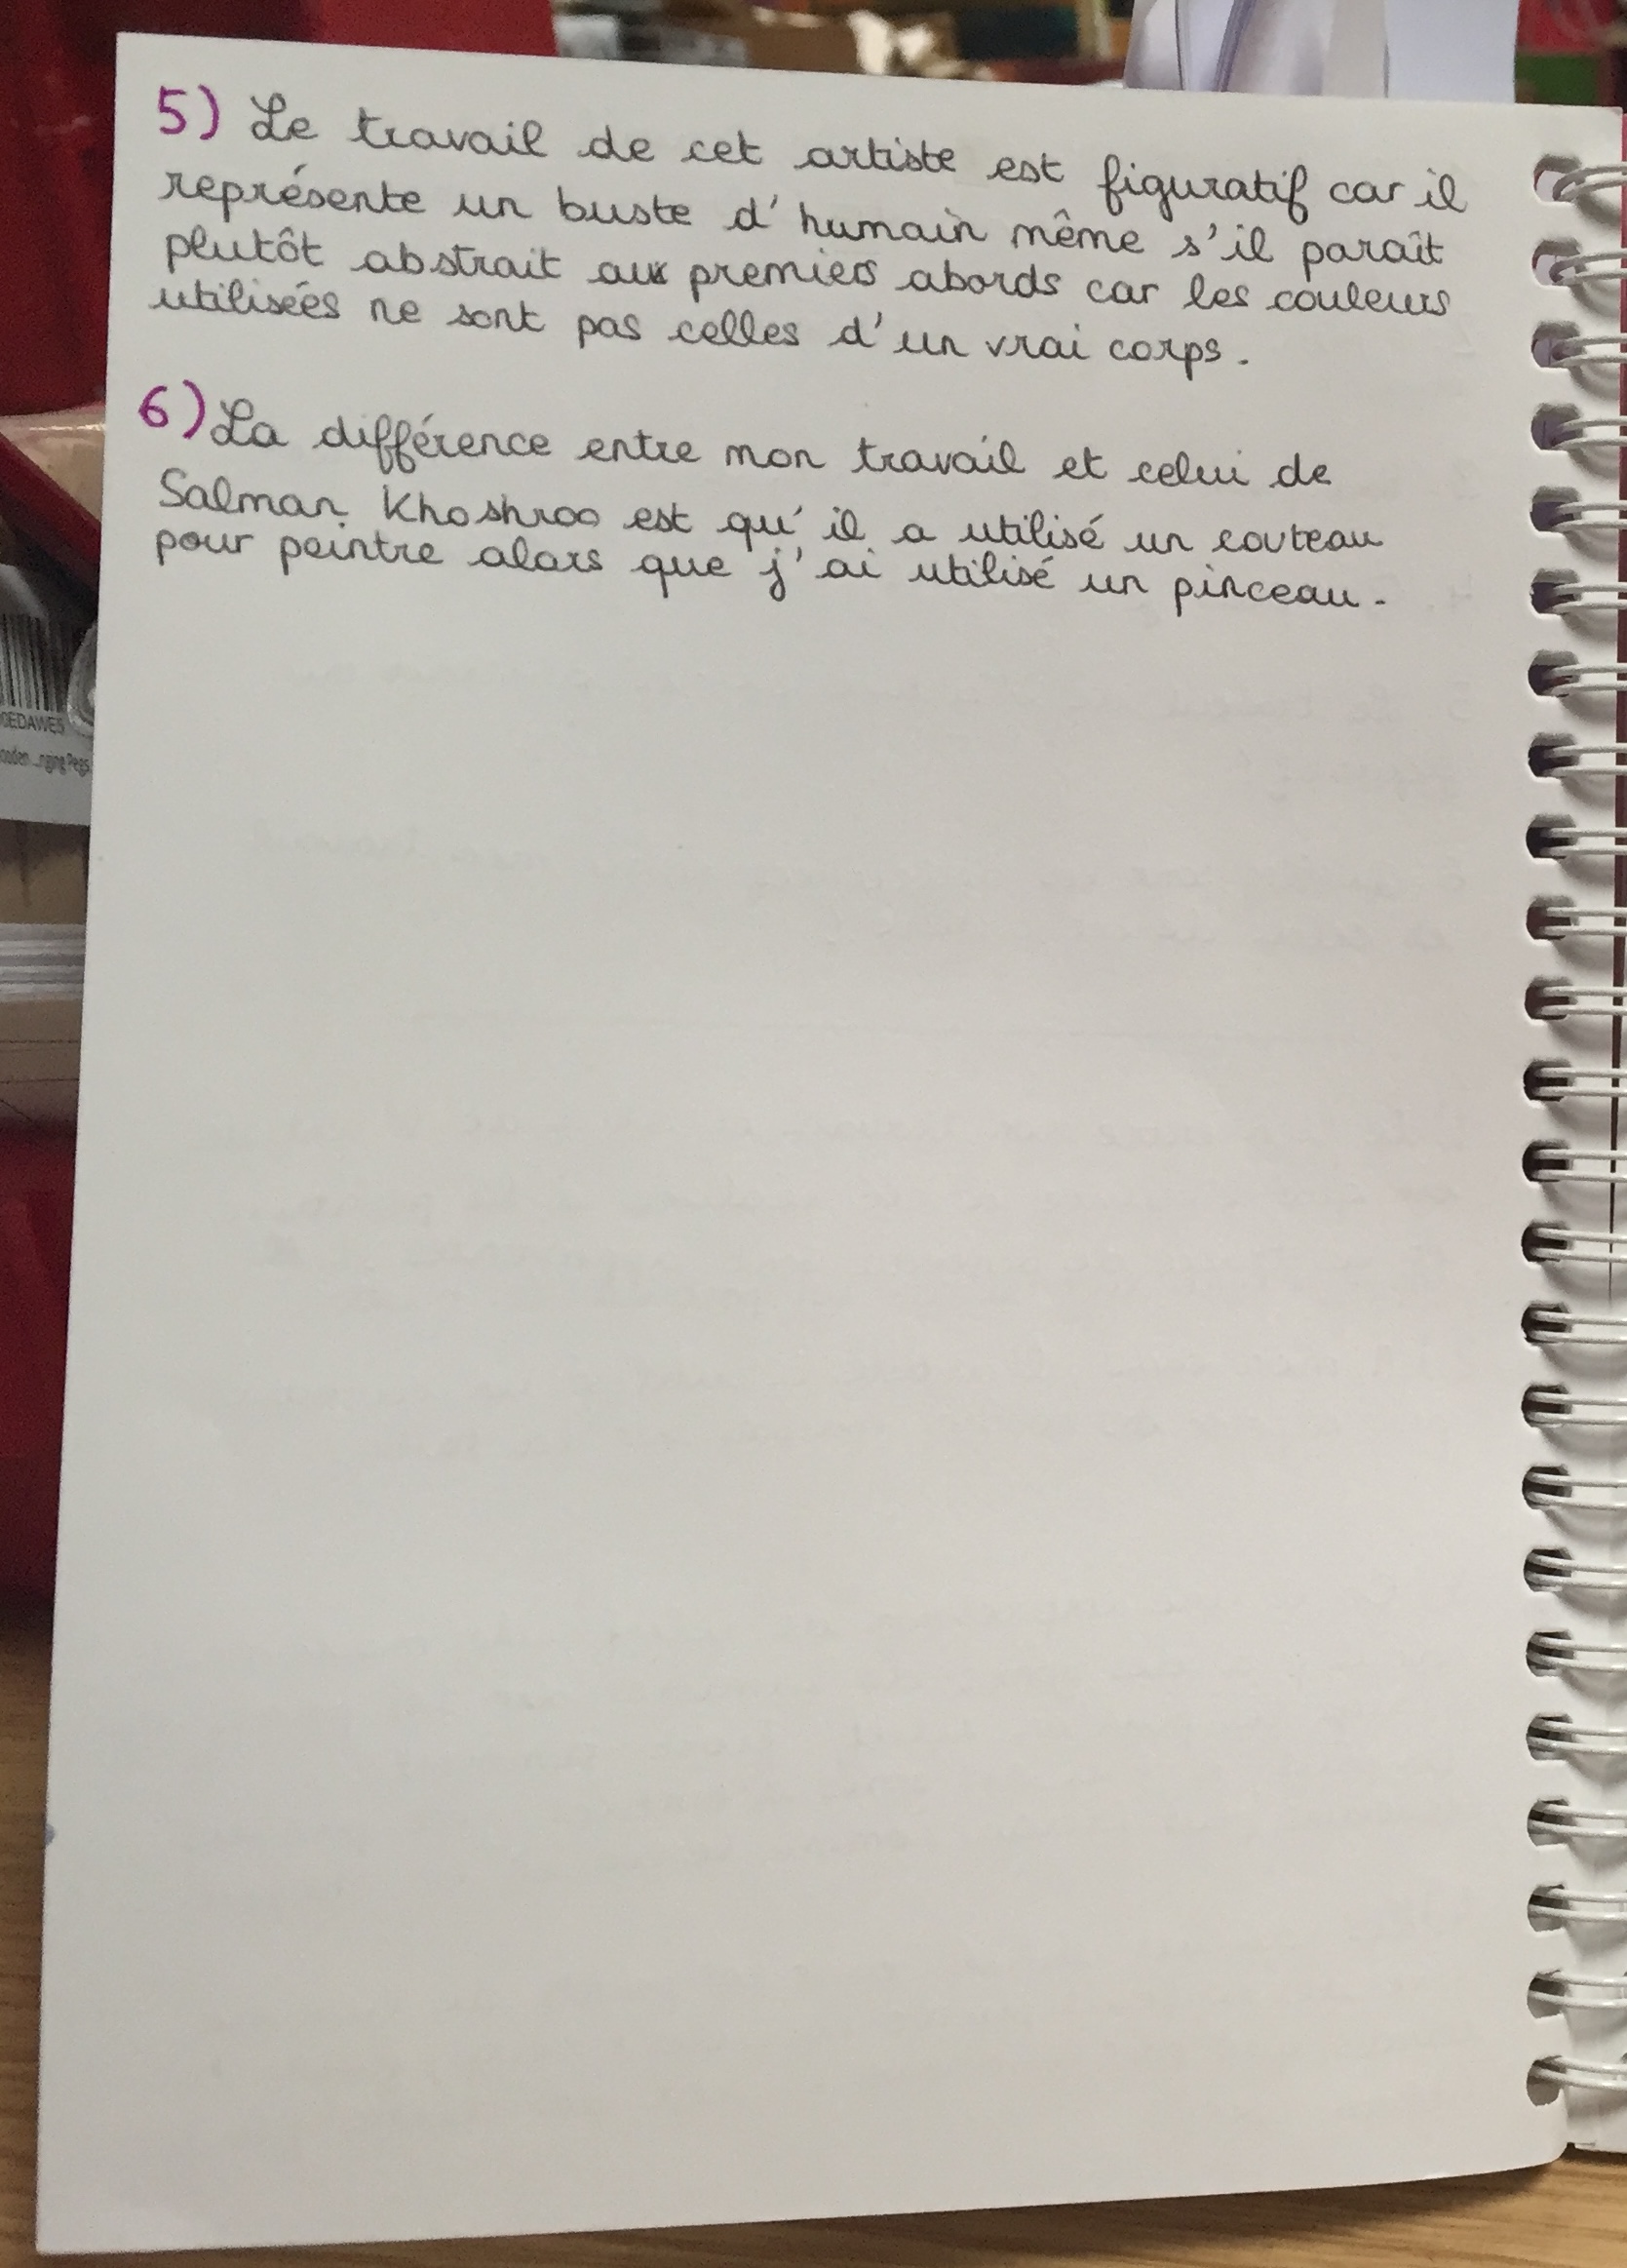 5) Le travail de cet artiste est figuratif car il
représente un buste d'humain même s'il paraît
plutôt abstrait aux premiers abords car les couleurs
utilisées ne sont pas celles d'un vrai corps.
6) La différence entre mon travail et celui de
Salman Khoshroo est qu'il a utilisé un couteau
pour peintre alors que j'ai utilisé un pinceau.
0EDAWES
Pegs